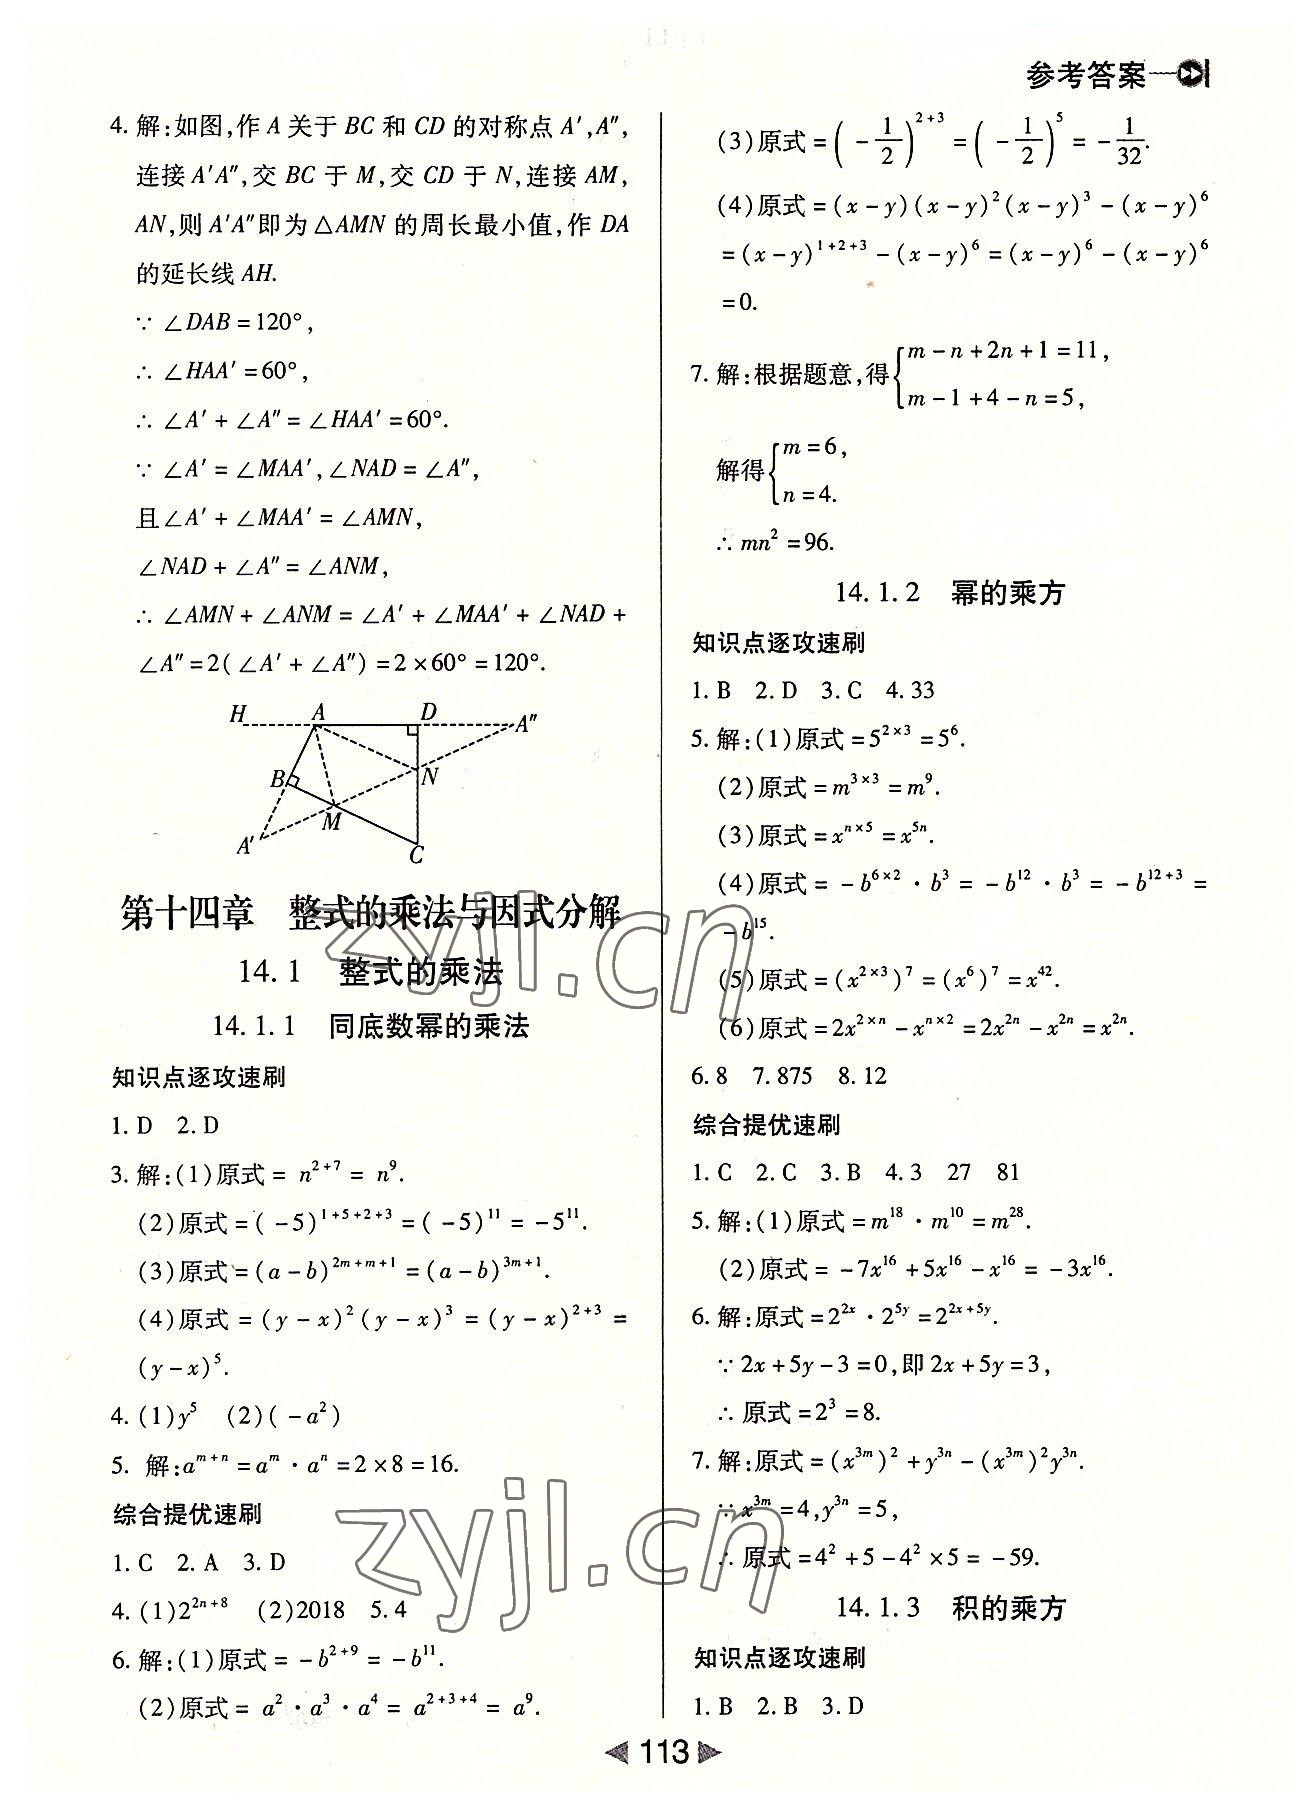 参考答案
4. 解:如图,作 A 关于 BC 和 CD 的对称点 A′,A″,
连接 A′A″,交 BC 于 M,交 CD 于 N,连接 AM,
AN,则 A′A″即为△AMN 的周长最小值,作 DA
的延长线 AH.
∵ ∠DAB=120°,
∴ ∠HAA′=60°,
∴ ∠A′+∠A″=∠HAA′=60°.
∵ ∠A′=∠MAA′,∠NAD=∠A″,
且∠A′+∠MAA′=∠AMN,
∠NAD+∠A″=∠ANM,
∴ ∠AMN+∠ANM=∠A′+∠MAA′+∠NAD+
∠A″=2(∠A′+∠A″)=2×60°=120°.
H A D A″
B N
M
A′ C
第十四章 整式的乘法与因式分解
14.1 整式的乘法
14.1.1 同底数幂的乘法
知识点逐攻速刷
1. D 2. D
3. 解:(1)原式= n²⁺⁷ = n⁹.
(2)原式=(-5)¹⁺⁵⁺²⁺³=(-5)¹¹=-5¹¹.
(3)原式=(a-b)²ᵐ⁺ᵐ⁺¹=(a-b)³ᵐ⁺¹.
(4)原式=(y-x)²(y-x)³=(y-x)²⁺³=
(y-x)⁵.
4. (1)y⁵ (2)(-a²)
5. 解:aᵐ⁺ⁿ=aᵐ·aⁿ=2×8=16.
综合提优速刷
1. C 2. A 3. D
4. (1)2²ⁿ⁺⁸ (2)2018 5. 4
6. 解:(1)原式=-b²⁺⁹=-b¹¹.
(2)原式= a²·a³·a⁴= a²⁺³⁺⁴= a⁹.
(3)原式=(-1/2)²⁺³=(-1/2)⁵=-1/32.
(4)原式=(x-y)(x-y)²(x-y)³-(x-y)⁶
=(x-y)¹⁺²⁺³-(x-y)⁶=(x-y)⁶-(x-y)⁶
=0.
7. 解:根据题意,得{m-n+2n+1=11,
m-1+4-n=5,
解得{m=6,
n=4.
∴ mn²=96.
14.1.2 幂的乘方
知识点逐攻速刷
1. B 2. D 3. C 4. 33
5. 解:(1)原式=5²ˣ³=5⁶.
(2)原式=m³ˣ³=m⁹.
(3)原式=xⁿˣ⁵=x⁵ⁿ.
(4)原式=-b⁶ˣ²·b³=-b¹²·b³=-b¹²⁺³=
-b¹⁵.
(5)原式=(x²ˣ³)⁷=(x⁶)⁷=x⁴².
(6)原式=2x²ˣⁿ-xⁿˣ²=2x²ⁿ-x²ⁿ=x²ⁿ.
6. 8 7. 875 8. 12
综合提优速刷
1. C 2. C 3. B 4. 3 27 81
5. 解:(1)原式=m¹⁸·m¹⁰=m²⁸.
(2)原式=-7x¹⁶+5x¹⁶-x¹⁶=-3x¹⁶.
6. 解:原式=2²ˣ·2⁵ʸ=2²ˣ⁺⁵ʸ.
∵ 2x+5y-3=0,即 2x+5y=3,
∴ 原式=2³=8.
7. 解:原式=(x³ᵐ)²+y³ⁿ-(x³ᵐ)²y³ⁿ.
∵ x³ᵐ=4,y³ⁿ=5,
∴ 原式=4²+5-4²×5=-59.
14.1.3 积的乘方
知识点逐攻速刷
1. B 2. B 3. D
113
zyjl.cn
zyjl.cn